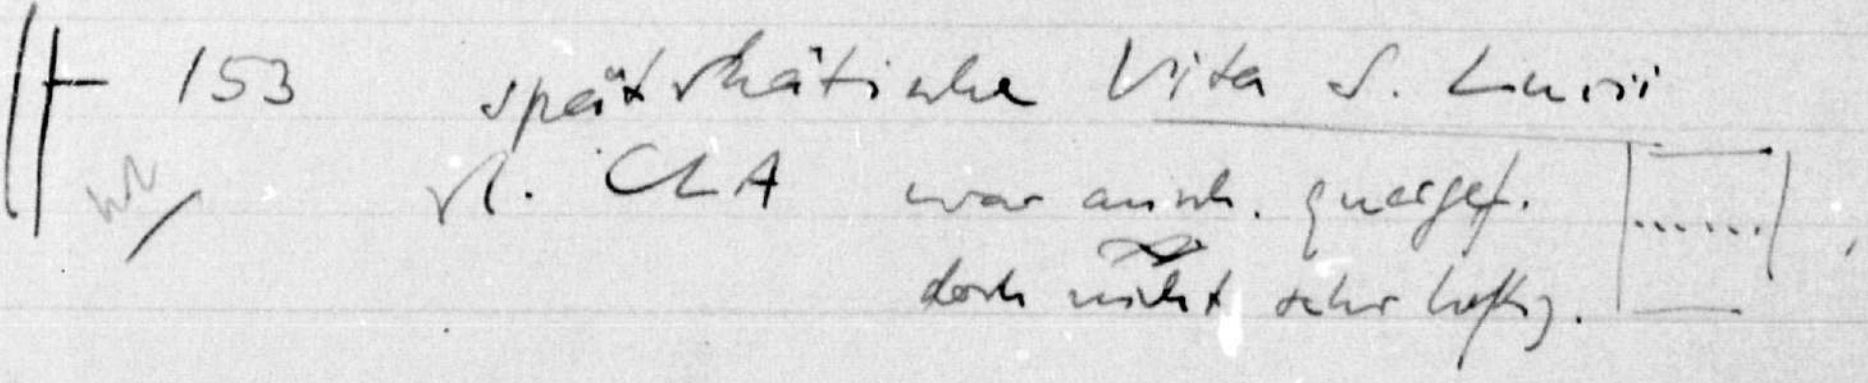 153 spät rhätische Vita S. Lucii
vl. CLA war ansch. quergef.
doch nicht sehr heftig.